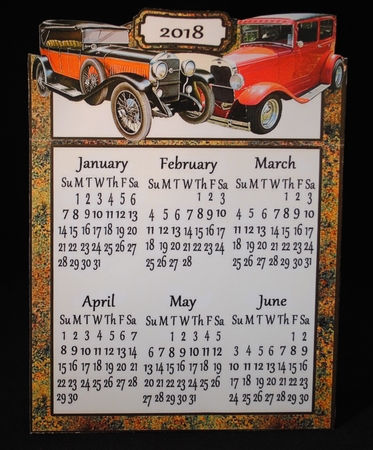 2018
January
Su M T W Th F Sa
1 2 3 4 5 6
7 8 9 10 11 12 13
14 15 16 17 18 19 20
21 22 23 24 25 26 27
28 29 30 31
February
Su M T W Th F Sa
1 2 3
4 5 6 7 8 9 10
11 12 13 14 15 16 17
18 19 20 21 22 23 24
25 26 27 28
March
Su M T W Th F Sa
1 2 3
4 5 6 7 8 9 10
11 12 13 14 15 16 17
18 19 20 21 22 23 24
25 26 27 28 29 30 31
April
Su M T W Th F Sa
1 2 3 4 5 6 7
8 9 10 11 12 13 14
15 16 17 18 19 20 21
22 23 24 25 26 27 28
29 30
May
Su M T W Th F Sa
1 2 3 4 5
6 7 8 9 10 11 12
13 14 15 16 17 18 19
20 21 22 23 24 25 26
27 28 29 30 31
June
Su M T W Th F Sa
1 2
3 4 5 6 7 8 9
10 11 12 13 14 15 16
17 18 19 20 21 22 23
24 25 26 27 28 29 30